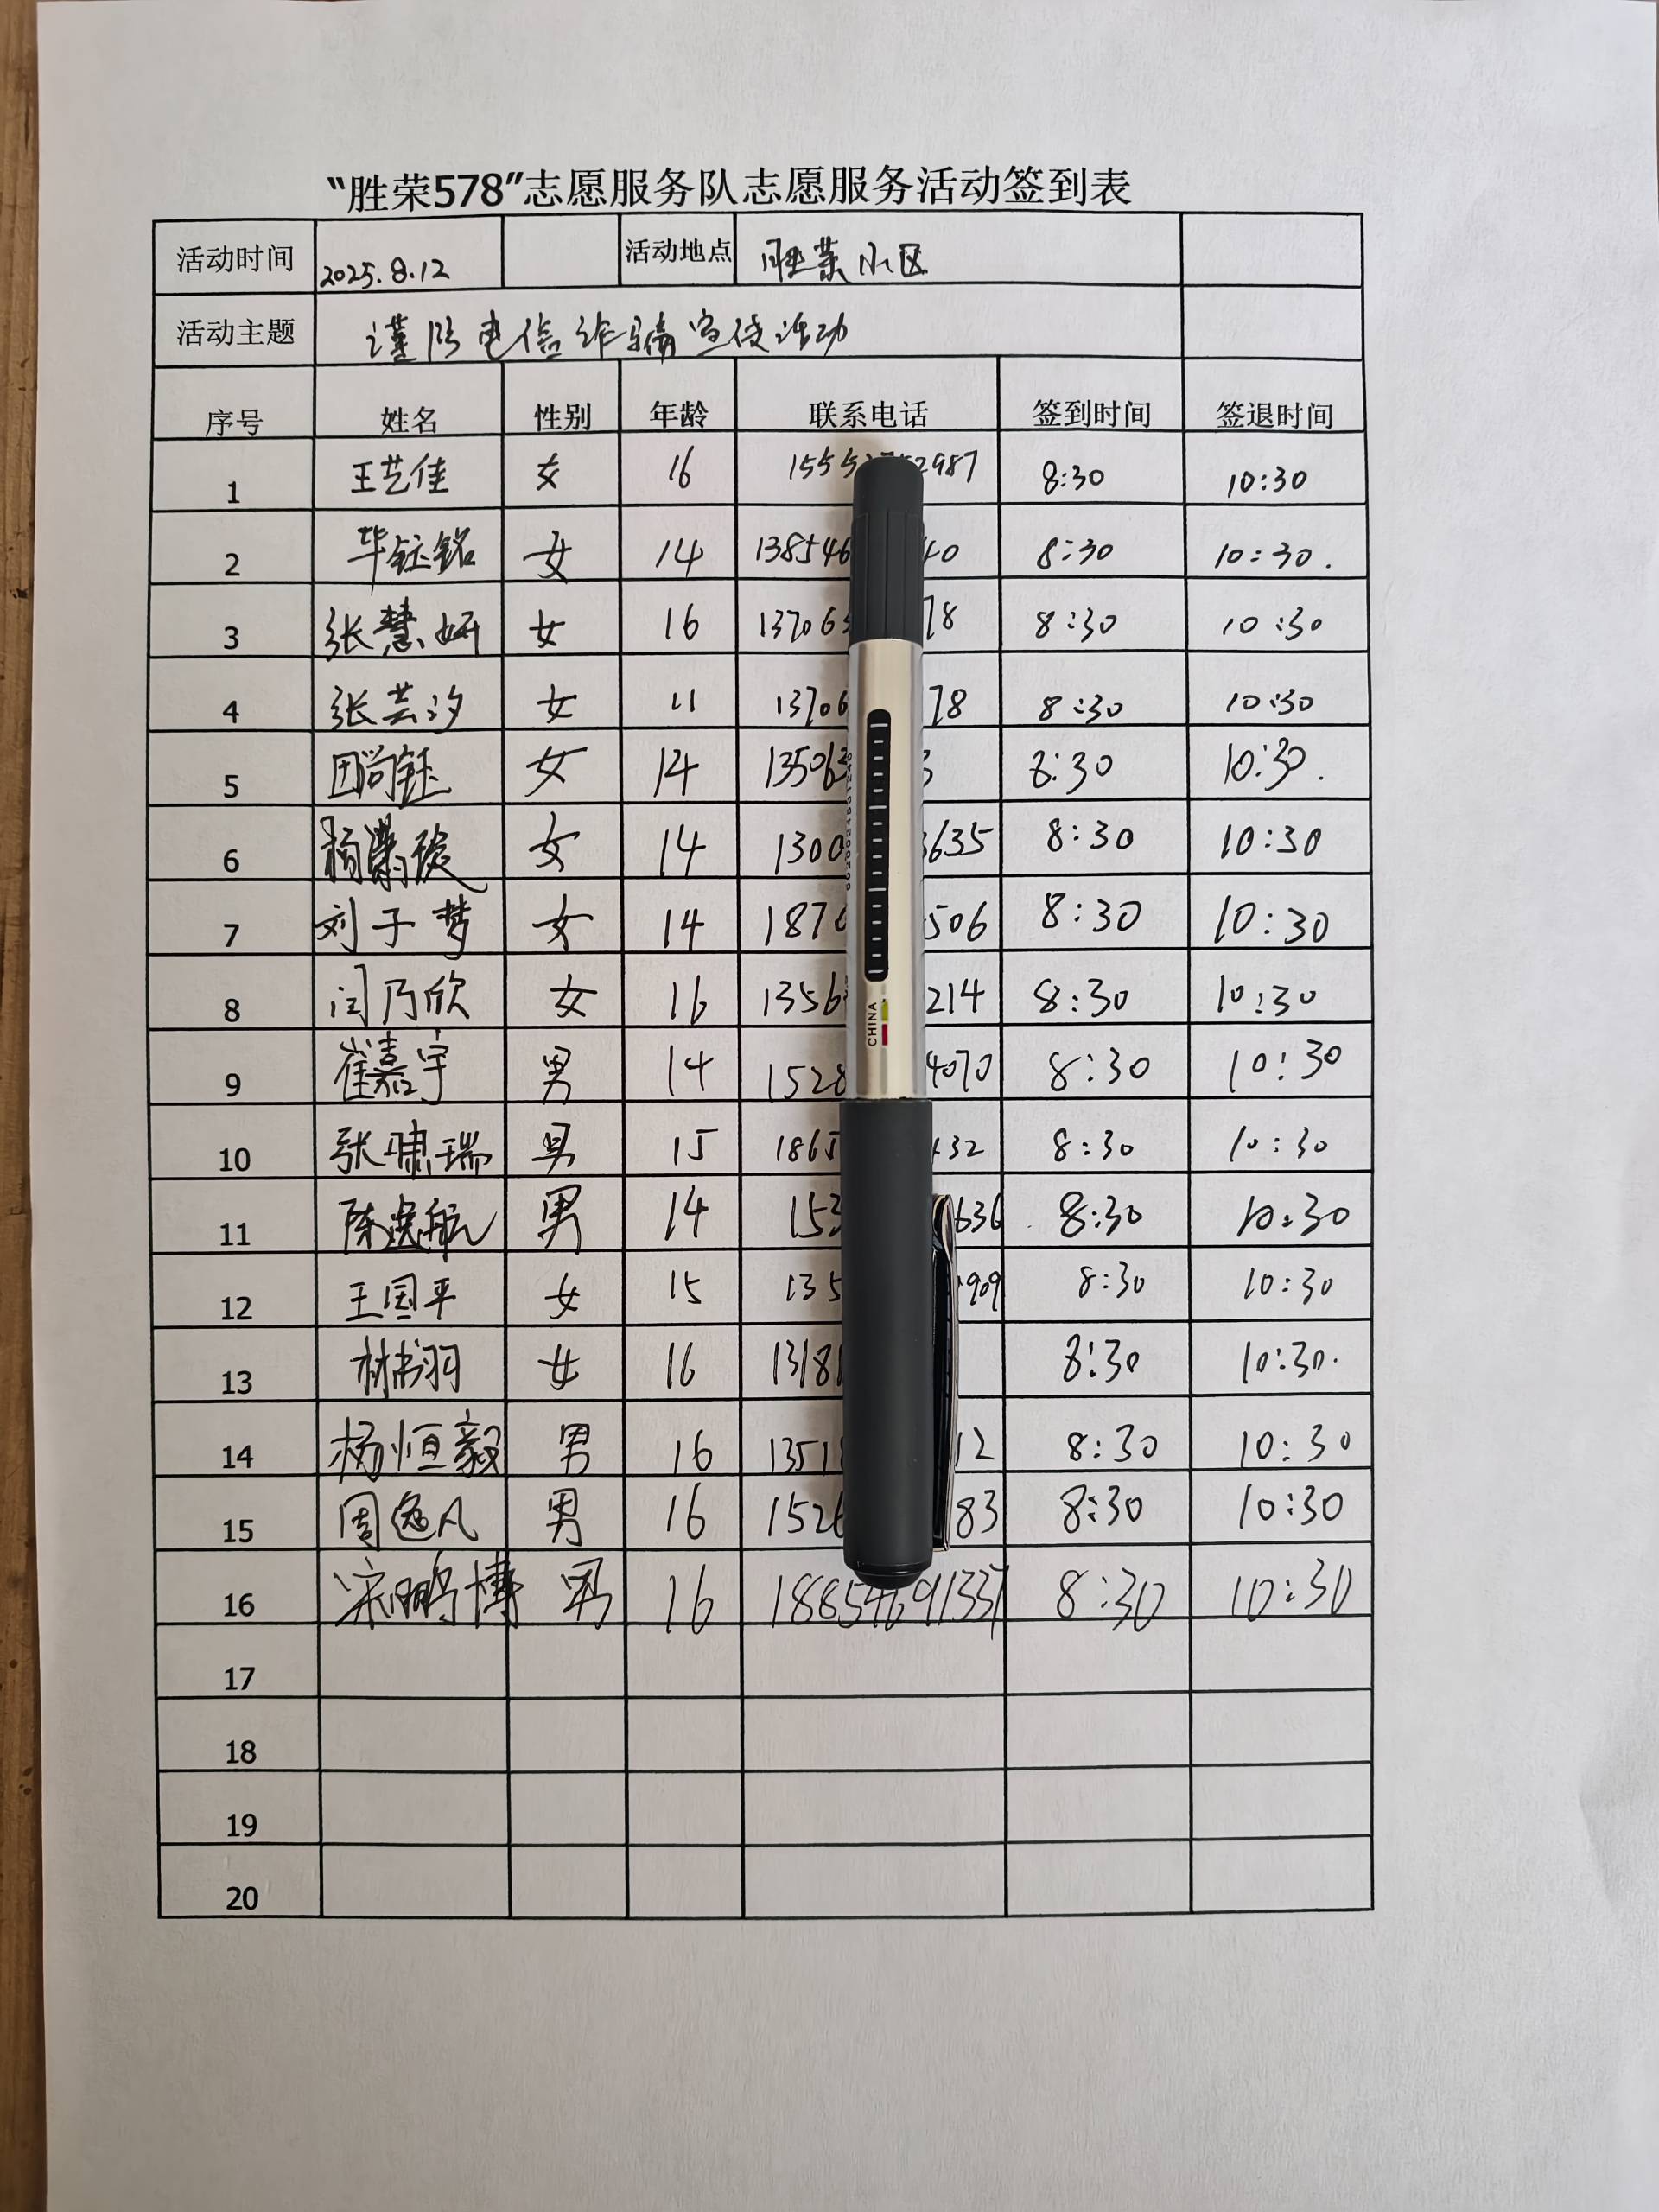 “胜荣578”志愿服务队志愿服务活动签到表
活动时间 2025.8.12 活动地点 胜荣小区
活动主题 谨防电信诈骗宣传活动
序号 姓名 性别 年龄 联系电话 签到时间 签退时间
1 王艺佳 女 16 8:30 10:30
2 毕钰铭 女 14 138546 40 8:30 10:30.
3 张慧妍 女 16 13706 78 8:30 10:30
4 张芸汐 女 11 13706 78 8:30 10:30
5 田尚钰 女 14 13506 8:30 10:30.
6 女 14 1300 635 8:30 10:30
7 刘子梦 女 14 187 506 8:30 10:30
8 闫乃欣 女 16 1356 214 8:30 10:30
9 崔嘉宇 男 14 1528 4070 8:30 10:30
10 张啸瑞 男 15 1865 32 8:30 10:30
11 陈奕航 男 14 153 636 8:30 10:30
12 王国平 女 15 135 909 8:30 10:30
13 林书羽 女 16 1318 8:30 10:30.
14 杨恒毅 男 16 1351 12 8:30 10:30
15 周逸凡 男 16 1526 83 8:30 10:30
16 宋鹏博 男 16 18854691337 8:30 10:30
17
18
19
20
CHINA